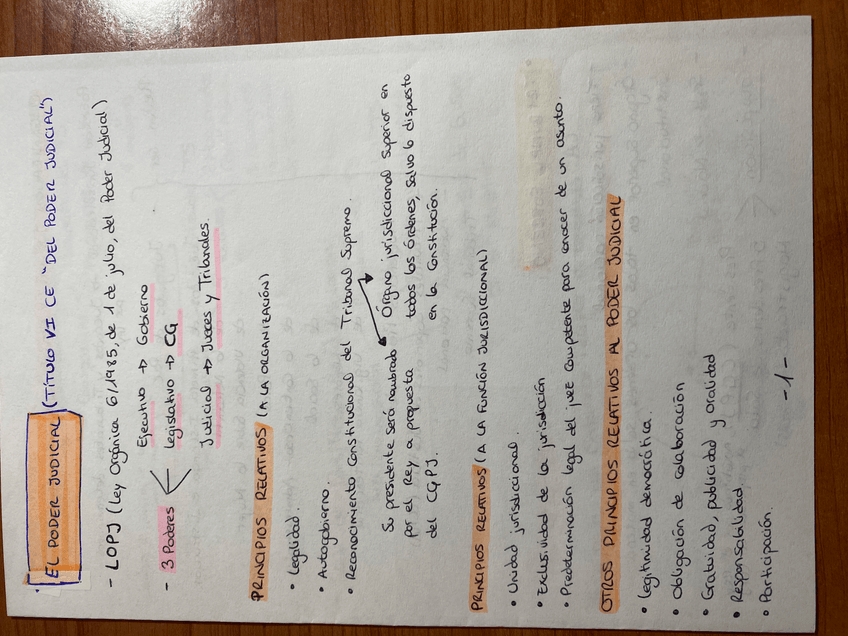 EL PODER JUDICIAL (TÍTULO VI CE "DEL PODER JUDICIAL")
- LOPJ (Ley Orgánica 6/1985, de 1 de julio, del Poder Judicial)
Ejecutivo → Gobierno
- 3 Poderes legislativo → CG
Judicial → Jueces y Tribunales.
PRINCIPIOS RELATIVOS (A LA ORGANIZACIÓN)
• Legalidad.
• Autogobierno.
• Reconocimiento Constitucional del Tribunal Supremo.
Su presidente será nombrado
por el Rey a propuesta
del CGPJ.
Órgano jurisdiccional superior en
todos los órdenes, salvo lo dispuesto
en la Constitución.
PRINCIPIOS RELATIVOS (A LA FUNCIÓN JURISDICCIONAL)
• Unidad jurisdiccional.
• Exclusividad de la jurisdicción
• Predeterminación legal del juez competente para conocer de un asunto.
OTROS PRINCIPIOS RELATIVOS AL PODER JUDICIAL
• Legitimidad democrática.
• Obligación de colaboración
• Gratuidad, publicidad y oralidad
• Responsabilidad
• Participación.
-1-